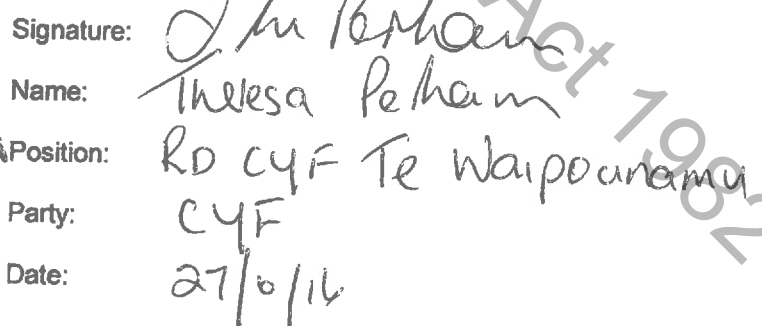 Signature:
Name: Theresa Perham
Position: RD CYF Te Waipounamu
Party: CYF
Date:
Act 1982